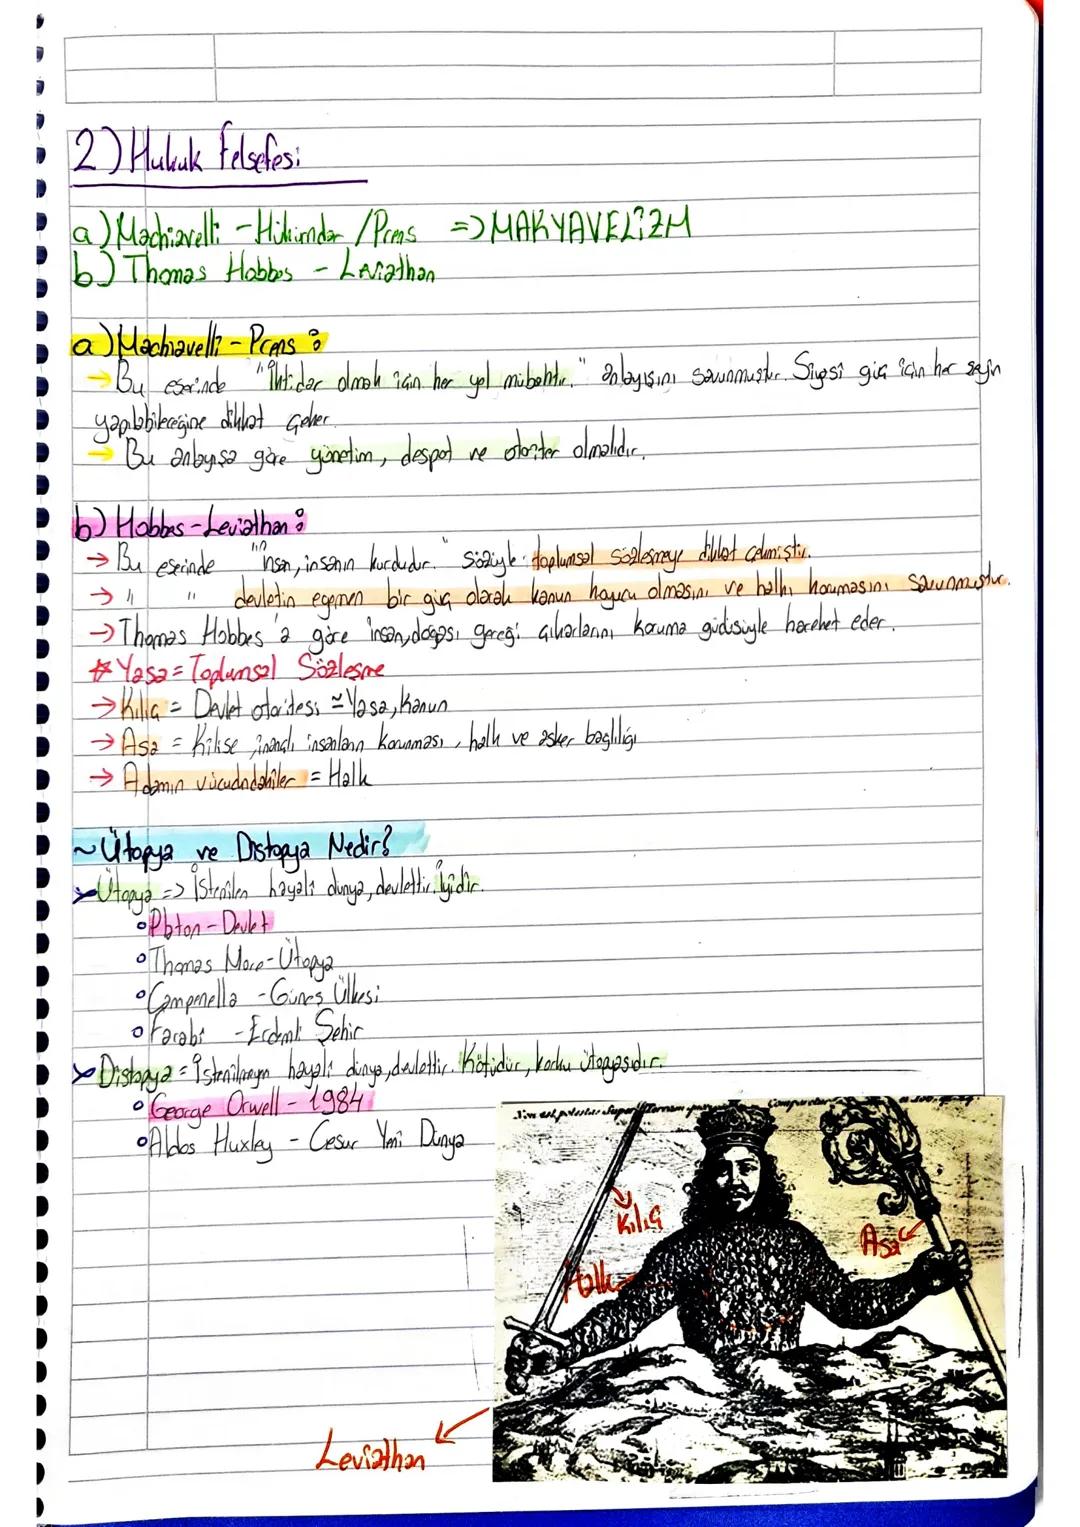 2) Hukuk Felsefesi
a) Machiavelli - Hükümdar / Prens => MAKYAVELİZM
b) Thomas Hobbes - Leviathan
a) Machiavelli - Prens :
→ Bu eserinde "İktidar olmak için her yol mübahtır." anlayışını savunmuştur. Siyasi güç için her şeyin
yapılabileceğine dikkat çeker.
→ Bu anlayışa göre yönetim, despot ve otoriter olmalıdır.
b) Hobbes - Leviathan :
→ Bu eserinde "İnsan, insanın kurdudur." sözüyle toplumsal sözleşmeye dikkat çekmiştir.
→ " " devletin egemen bir güç olarak kanun koyucu olmasını ve halkı korumasını savunmuştur.
→ Thomas Hobbes'a göre insan, doğası gereği çıkarlarını koruma güdüsüyle hareket eder.
* Yasa = Toplumsal Sözleşme
→ Kılıç = Devlet otoritesi ≃ Yasa, Kanun
→ Asa = Kilise, inançlı insanların korunması, halk ve asker bağlılığı
→ Adamın vücudundakiler = Halk
~ Ütopya ve Distopya Nedir?
Ütopya => İstenilen hayali dünya, devlettir. İyidir.
Platon - Devlet
Thomas More - Ütopya
Campenella - Güneş Ülkesi
Farabi - Erdemli Şehir
Distopya = İstenilmeyen hayali dünya, devlettir. Kötüdür, korku ütopyasıdır.
George Orwell - 1984
Aldos Huxley - Cesur Yeni Dünya
Kılıç
Asa
Halk
Leviathan